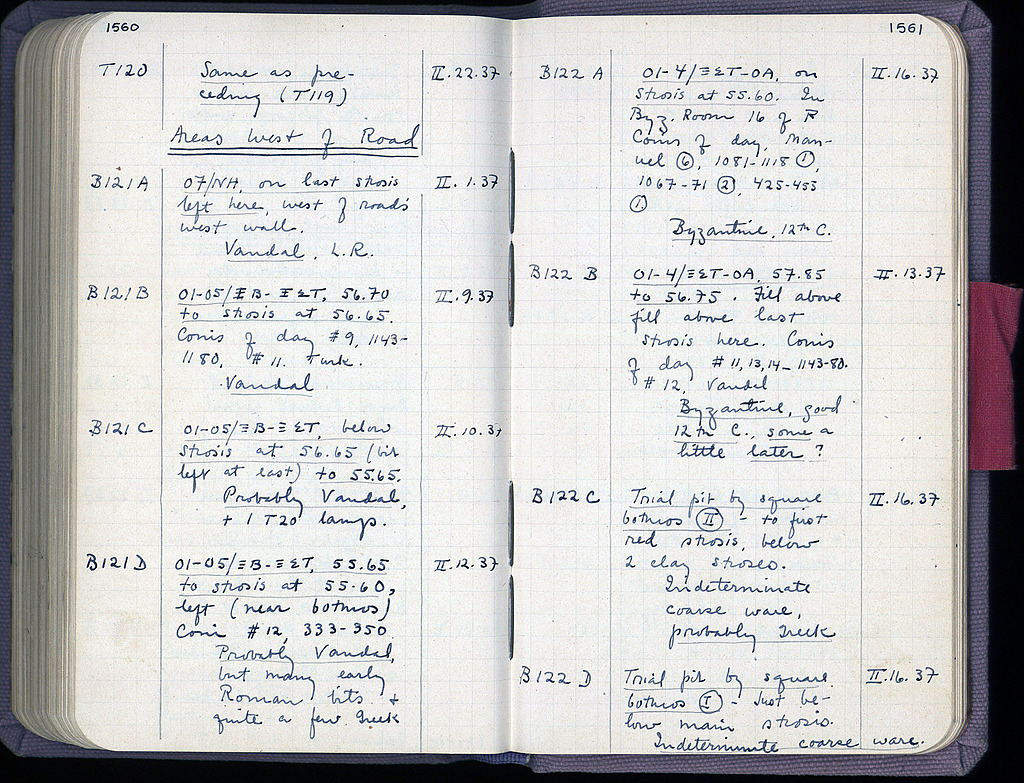 1560
T120 Same as pre- II.22.37
ceding (T119)
Areas West of Road
B121A 07/ΝΗ, on last strosis II.1.37
left here, west of road's
west wall.
Vandal, L.R.
B121B 01-05/ΞΒ-ΞΣΤ, 56.70 II.9.37
to strosis at 56.65.
Coins of day #9, 1143-
1180, #11. Turk.
Vandal
B121C 01-05/ΞΒ-ΞΣΤ, below II.10.37
strosis at 56.65 (bit
left at east) to 55.65.
Probably Vandal,
+ 1 T20 lamps.
B121D 01-05/ΞΒ-ΞΣΤ, 55.65 II.12.37
to strosis at 55.60,
left (near bothros)
Coin #12, 333-350
Probably Vandal,
but many early
Roman bits +
quite a few Greek
1561
B122 A 01-4/ΞΣΤ-ΟΑ, on II.16.37
strosis at 55.60. In
Byz. Room 16 of R
Coins of day, Man-
uel (6), 1081-1118 (1),
1067-71 (2), 425-453
(1)
Byzantine, 12th C.
B122 B 01-4/ΞΣΤ-ΟΑ, 57.85 II.13.37
to 56.75. Fill above
fill above last
strosis here. Coins
of day #11, 13, 14 – 1143-80.
#12, Vandal
Byzantine, good
12th C., some a
little later?
B122 C Trial pit by square II.16.37
bothros (II) - to first
red strosis, below
2 clay stroseo.
Indeterminate
coarse ware,
probably Greek
B122 D Trial pit by square II.16.37
bothros (I) - Just be-
low main strosis.
Indeterminate coarse ware.